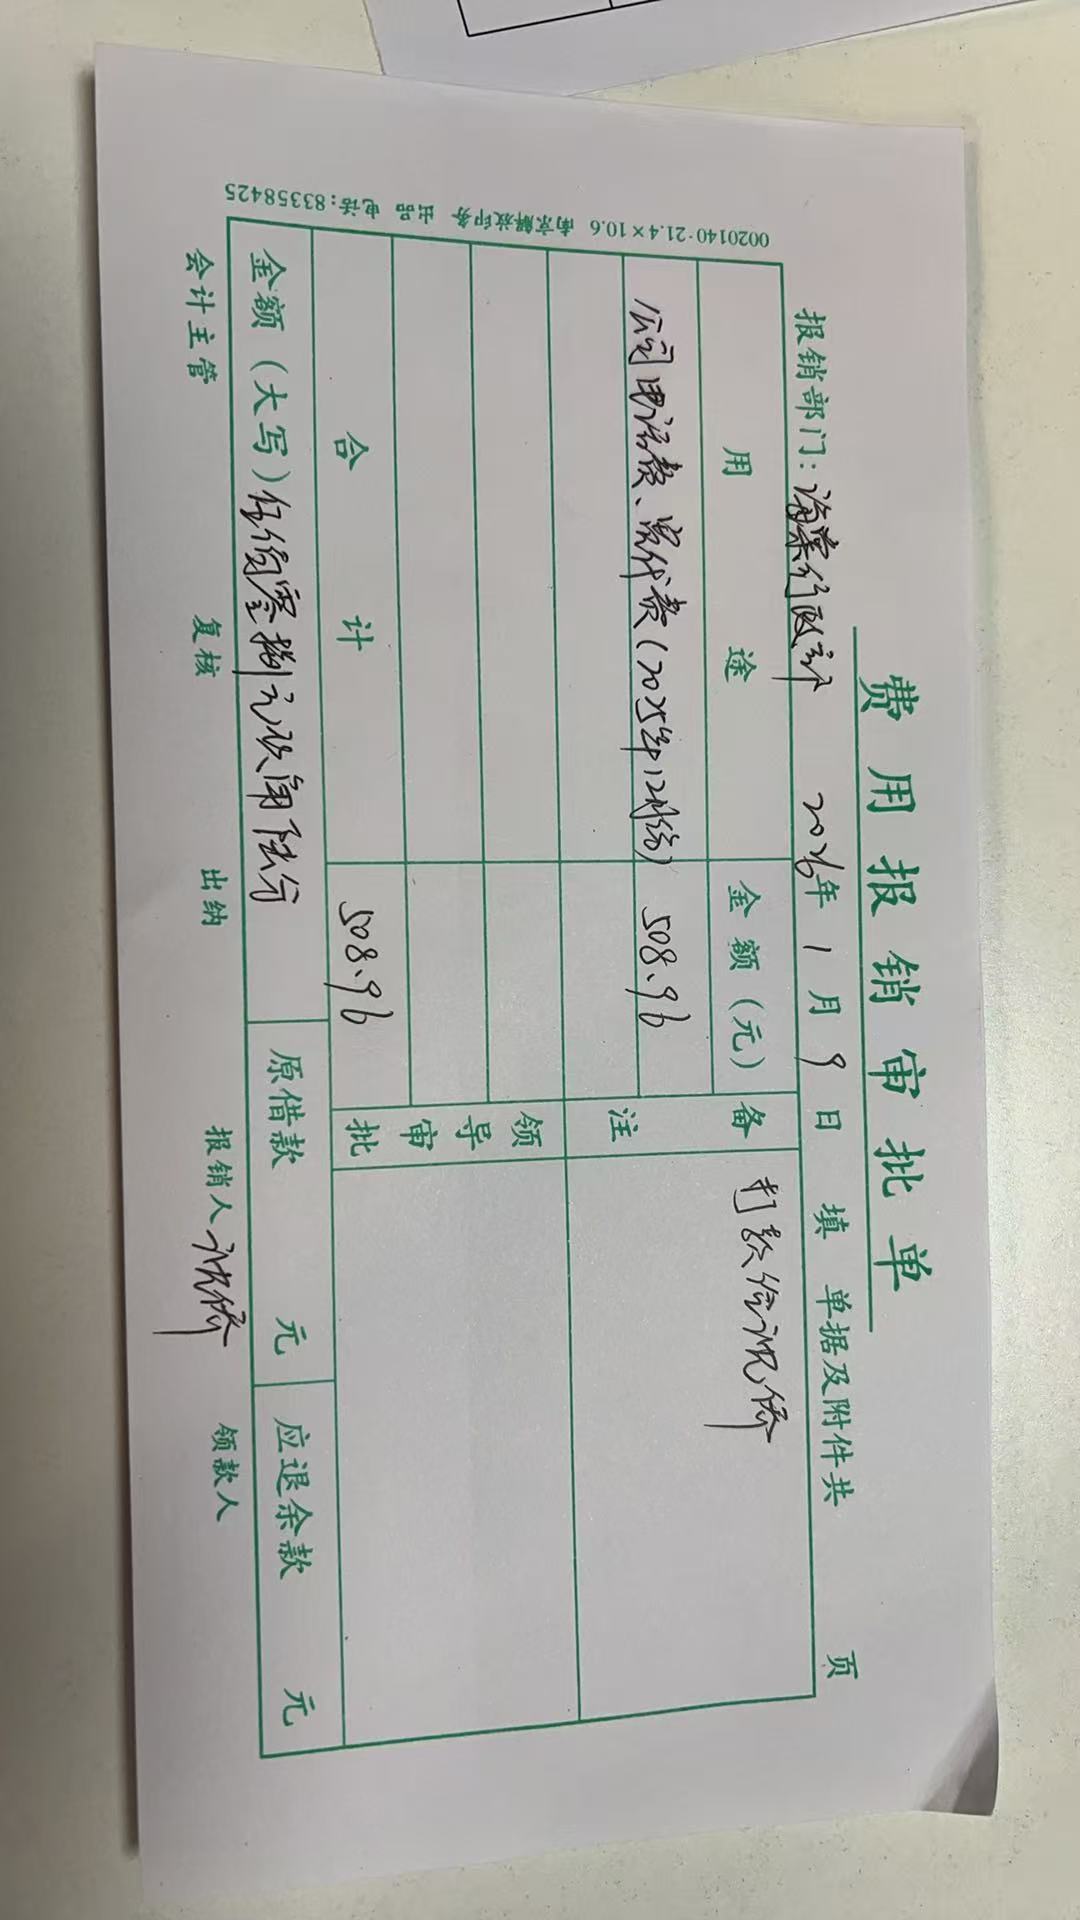 费用报销审批单
报销部门：海棠行政部 2026年1月9日填 单据及附件共 页
用途 金额（元） 备注 打款给祝侨
公司电话费、宽带费（2025年12月份） 508.96
领导审批
合计 508.96
金额（大写）伍佰零捌元玖角陆分 原借款 元 应退余款 元
会计主管 复核 出纳 报销人 祝侨 领款人
0020140·21.4×10.6 南京解放印务 出品 电话：83358425